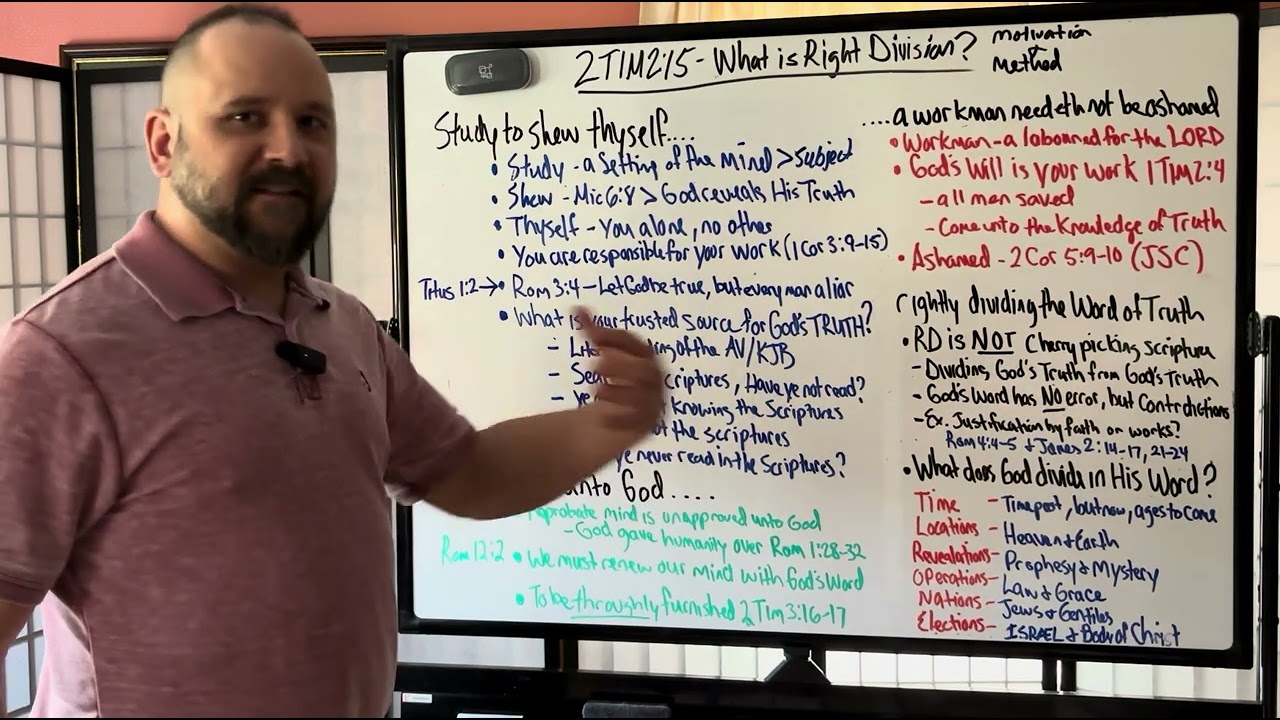 2TIM2:15 - What is Right Division?
motivation
+
method
Study to shew thyself....
• Study - a setting of the mind > subject
• Shew - Mic 6:8 > God reveals His Truth
• Thyself - you alone, no other
• You are responsible for your work (1 Cor 3:9-15)
Titus 1:2 → • Rom 3:4 - Let God be true, but every man a liar
• What is your trusted source for God's TRUTH?
- of the AV/KJB
- criptures, Have ye not read?
- ye knowing the Scriptures
the scriptures
ye never read in the Scriptures?
unto God....
reprobate mind is unapproved unto God
- God gave humanity over Rom 1:28-32
Rom 12:2 • We must renew our mind with God's Word
• To be throughly furnished 2 Tim 3:16-17
....a workman needeth not be ashamed
• Workman - a labourer for the LORD
• God's Will is your work 1 TIM 2:4
- all men saved
- Come unto the Knowledge of Truth
• Ashamed - 2 Cor 5:9-10 (JSC)
rightly dividing the Word of Truth
• RD is NOT Cherry picking scripture
- Dividing God's Truth from God's Truth
- God's Word has NO error, but Contrdictions
- Ex. Justification by faith or works?
Rom 4:4-5 & James 2:14-17, 21-24
• What does God divide in His Word?
Time - Time past, but now, ages to come
Locations - Heaven & Earth
Revealations - Prophesy & Mystery
Operations - Law & Grace
Nations - Jews & Gentiles
Elections - ISRAEL & Body of Christ